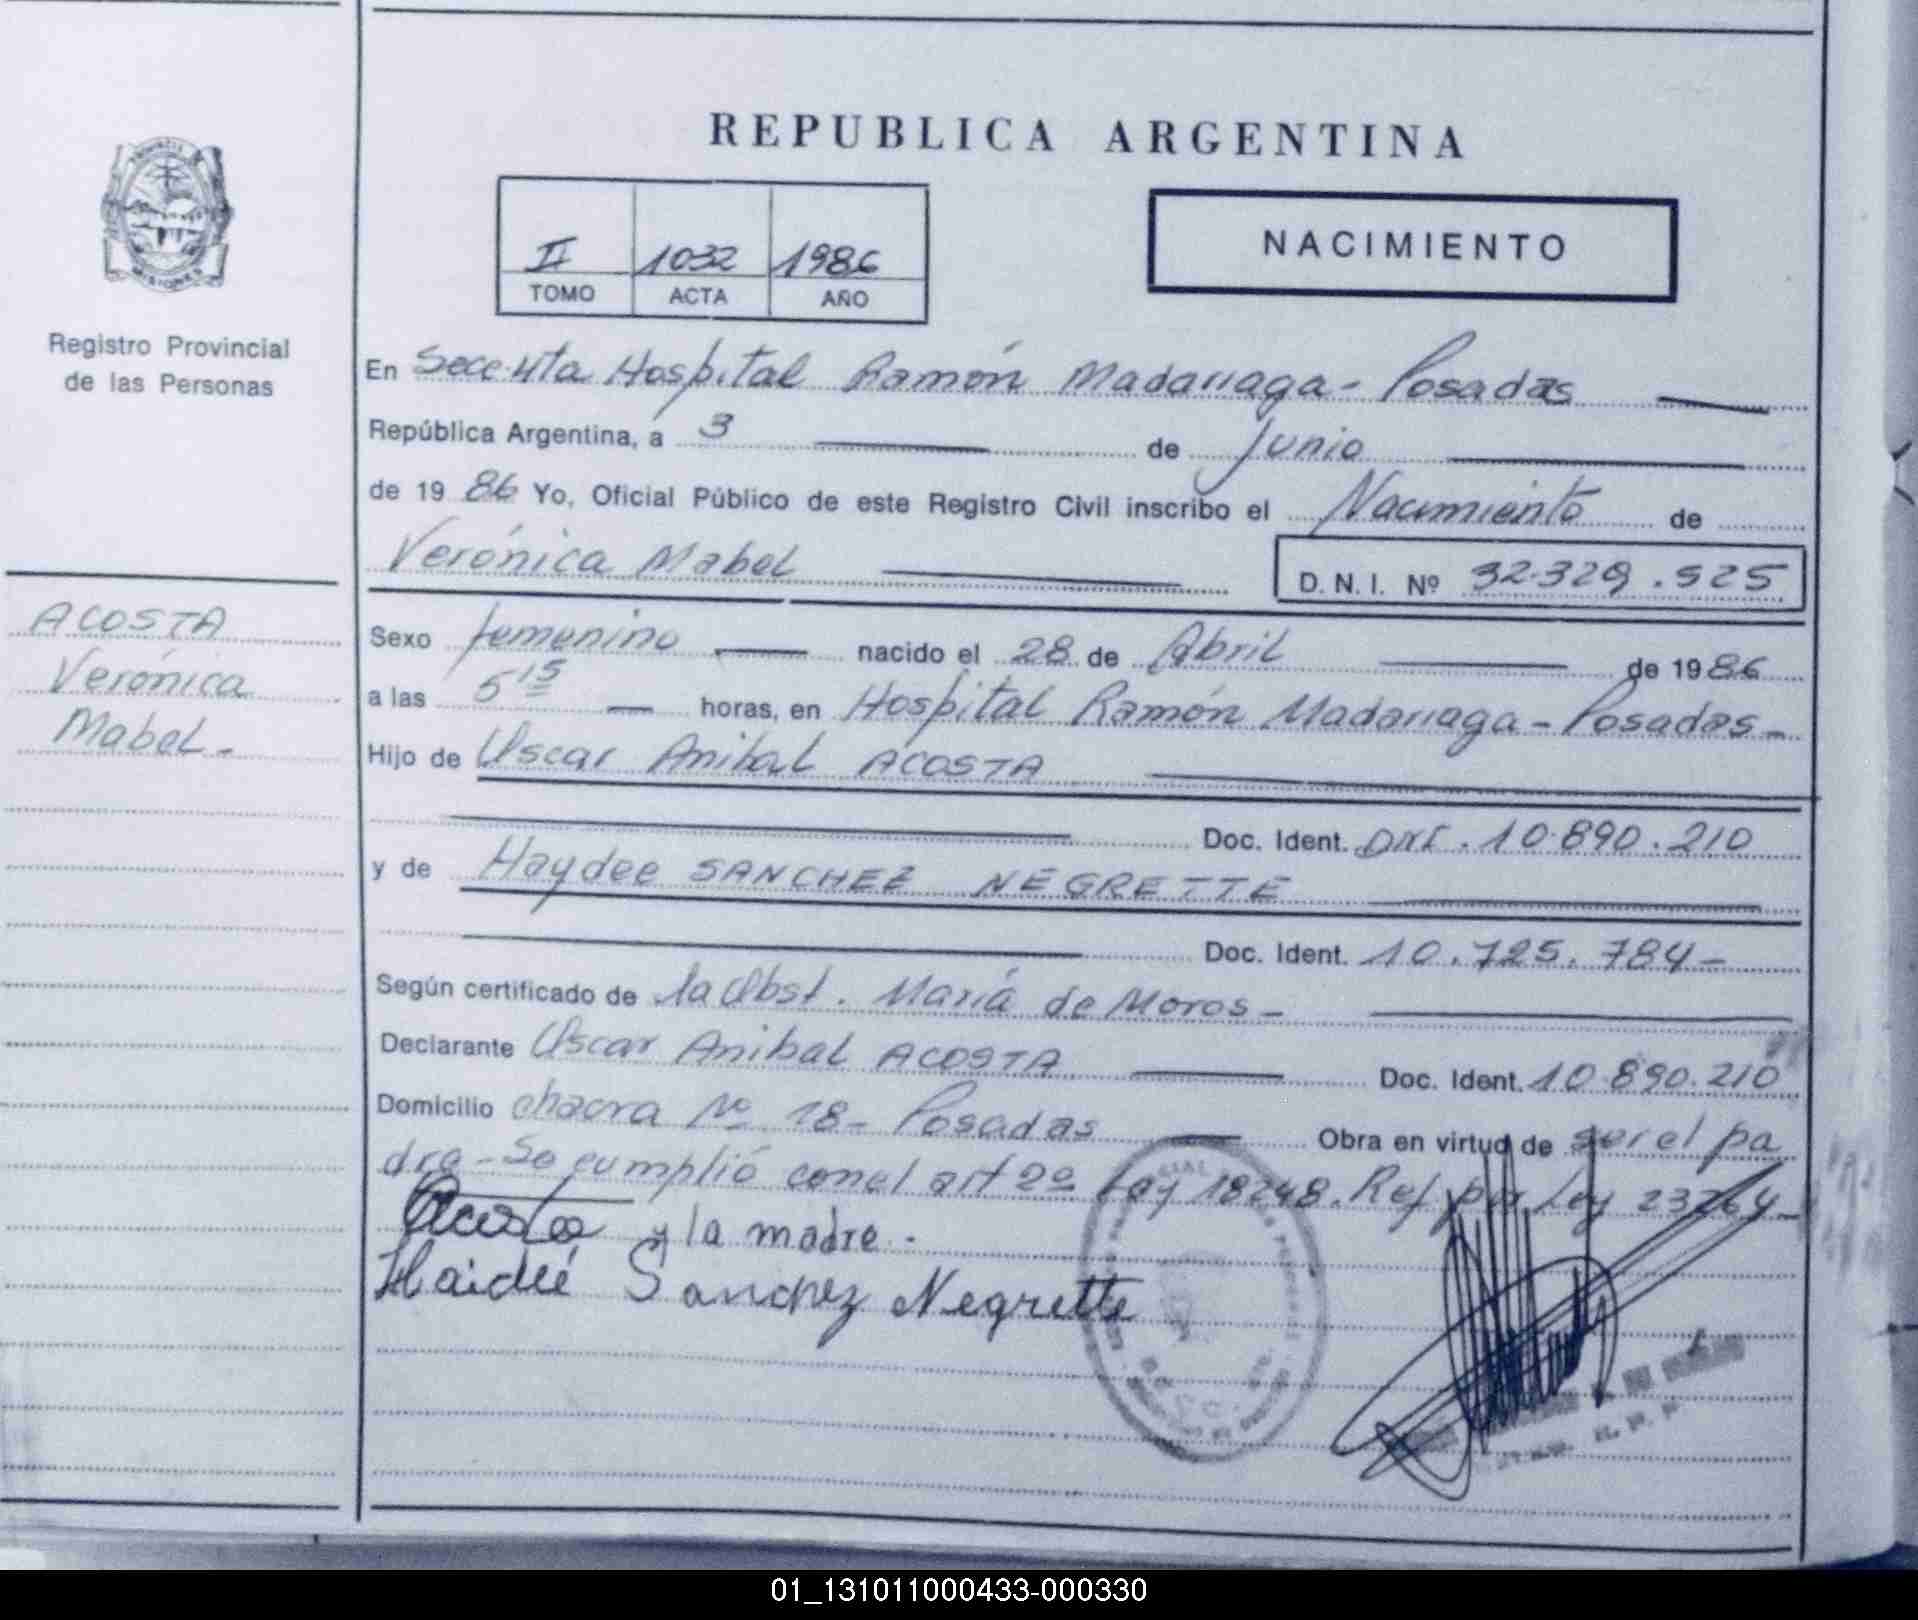 REPUBLICA ARGENTINA
NACIMIENTO
II 1032 1986
TOMO ACTA AÑO
MISIONES
Registro Provincial
de las Personas
ACOSTA
Verónica
Mabel -
En Hospital Ramón Madariaga - Posadas
República Argentina, a 3 de Junio
de 1986 Yo, Oficial Público de este Registro Civil inscribo el Nacimiento de
Verónica Mabel D.N.I. Nº 32.329.525
Sexo femenino nacido el 28 de Abril de 1986
a las 5 15 horas, en Hospital Ramón Madariaga - Posadas -
Hijo de Oscar Anibal ACOSTA
Doc. Ident. DNI. 10.890.210
y de Haydee SANCHEZ NEGRETTE
Doc. Ident. 10.725.784 -
Según certificado de la Obst. María de Moros -
Declarante Oscar Anibal ACOSTA Doc. Ident. 10.890.210
Domicilio chacra Nº 18 - Posadas Obra en virtud de ser el pa
dre - Se cumplió con el art 2º Ley 18248. Ref por Ley 23264 -
Acosta y la madre.
Haideé Sanchez Negrette
01_131011000433-000330